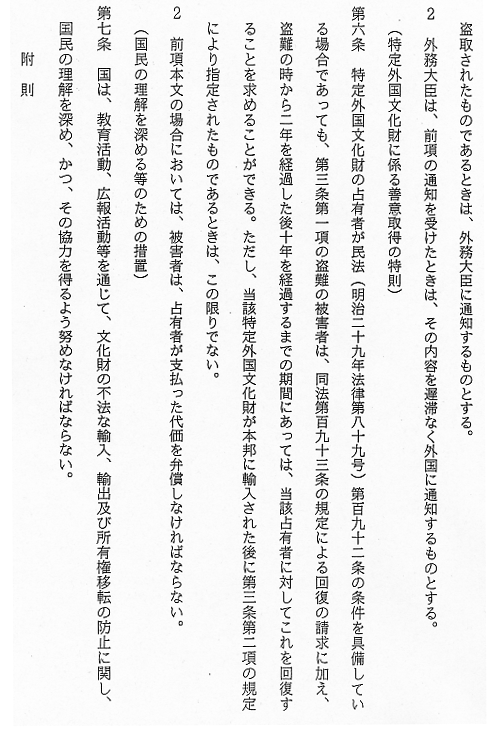 盗取されたものであるときは、外務大臣に通知するものとする。
２　外務大臣は、前項の通知を受けたときは、その内容を遅滞なく外国に通知するものとする。
（特定外国文化財に係る善意取得の特則）
第六条　特定外国文化財の占有者が民法（明治二十九年法律第八十九号）第百九十二条の条件を具備してい
る場合であっても、第三条第一項の盗難の被害者は、同法第百九十三条の規定による回復の請求に加え、
盗難の時から二年を経過した後十年を経過するまでの期間にあっては、当該占有者に対してこれを回復す
ることを求めることができる。ただし、当該特定外国文化財が本邦に輸入された後に第三条第二項の規定
により指定されたものであるときは、この限りでない。
２　前項本文の場合においては、被害者は、占有者が支払った代価を弁償しなければならない。
（国民の理解を深める等のための措置）
第七条　国は、教育活動、広報活動等を通じて、文化財の不法な輸入、輸出及び所有権移転の防止に関し、
国民の理解を深め、かつ、その協力を得るよう努めなければならない。
附　則